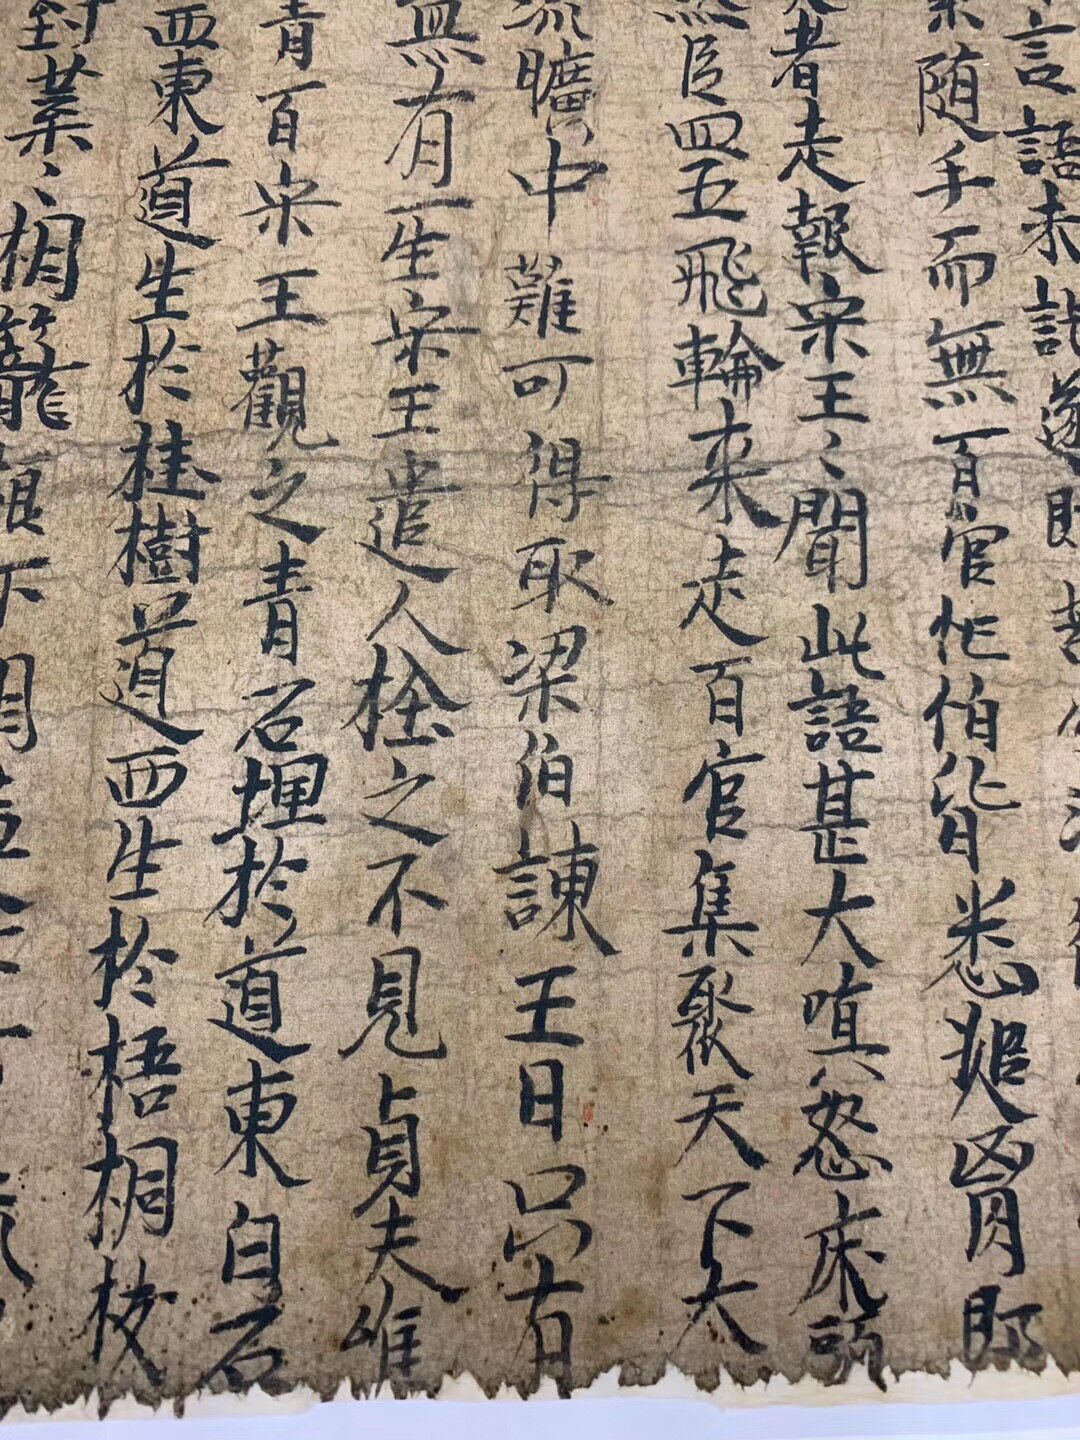 言語未訖遂即
随手而無百官忙怕皆悉搥胷即
者走報宋王〻聞此語甚大嗔怒床頭
臣四五飛輪来走百官集聚天下大
曠中難可得取梁伯諫王曰只有
無有一生宋王遣人拴之不見貞夫唯
青百宋王觀之青石埋於道東白石
西東道生於桂樹道西生於梧桐枝
對葉〻相籠根下相